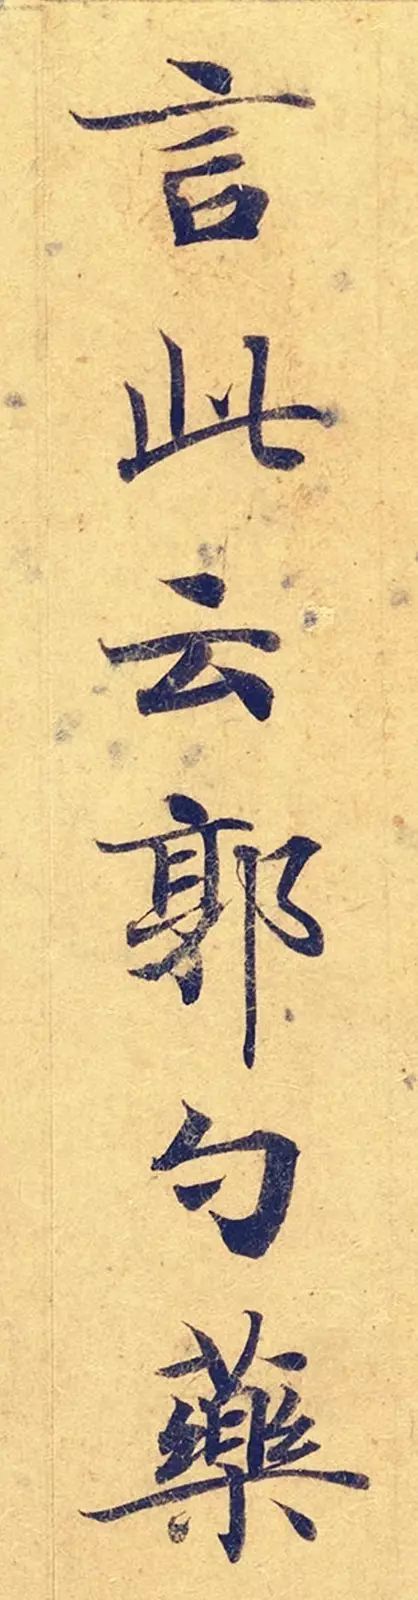 言此云郭勺藥